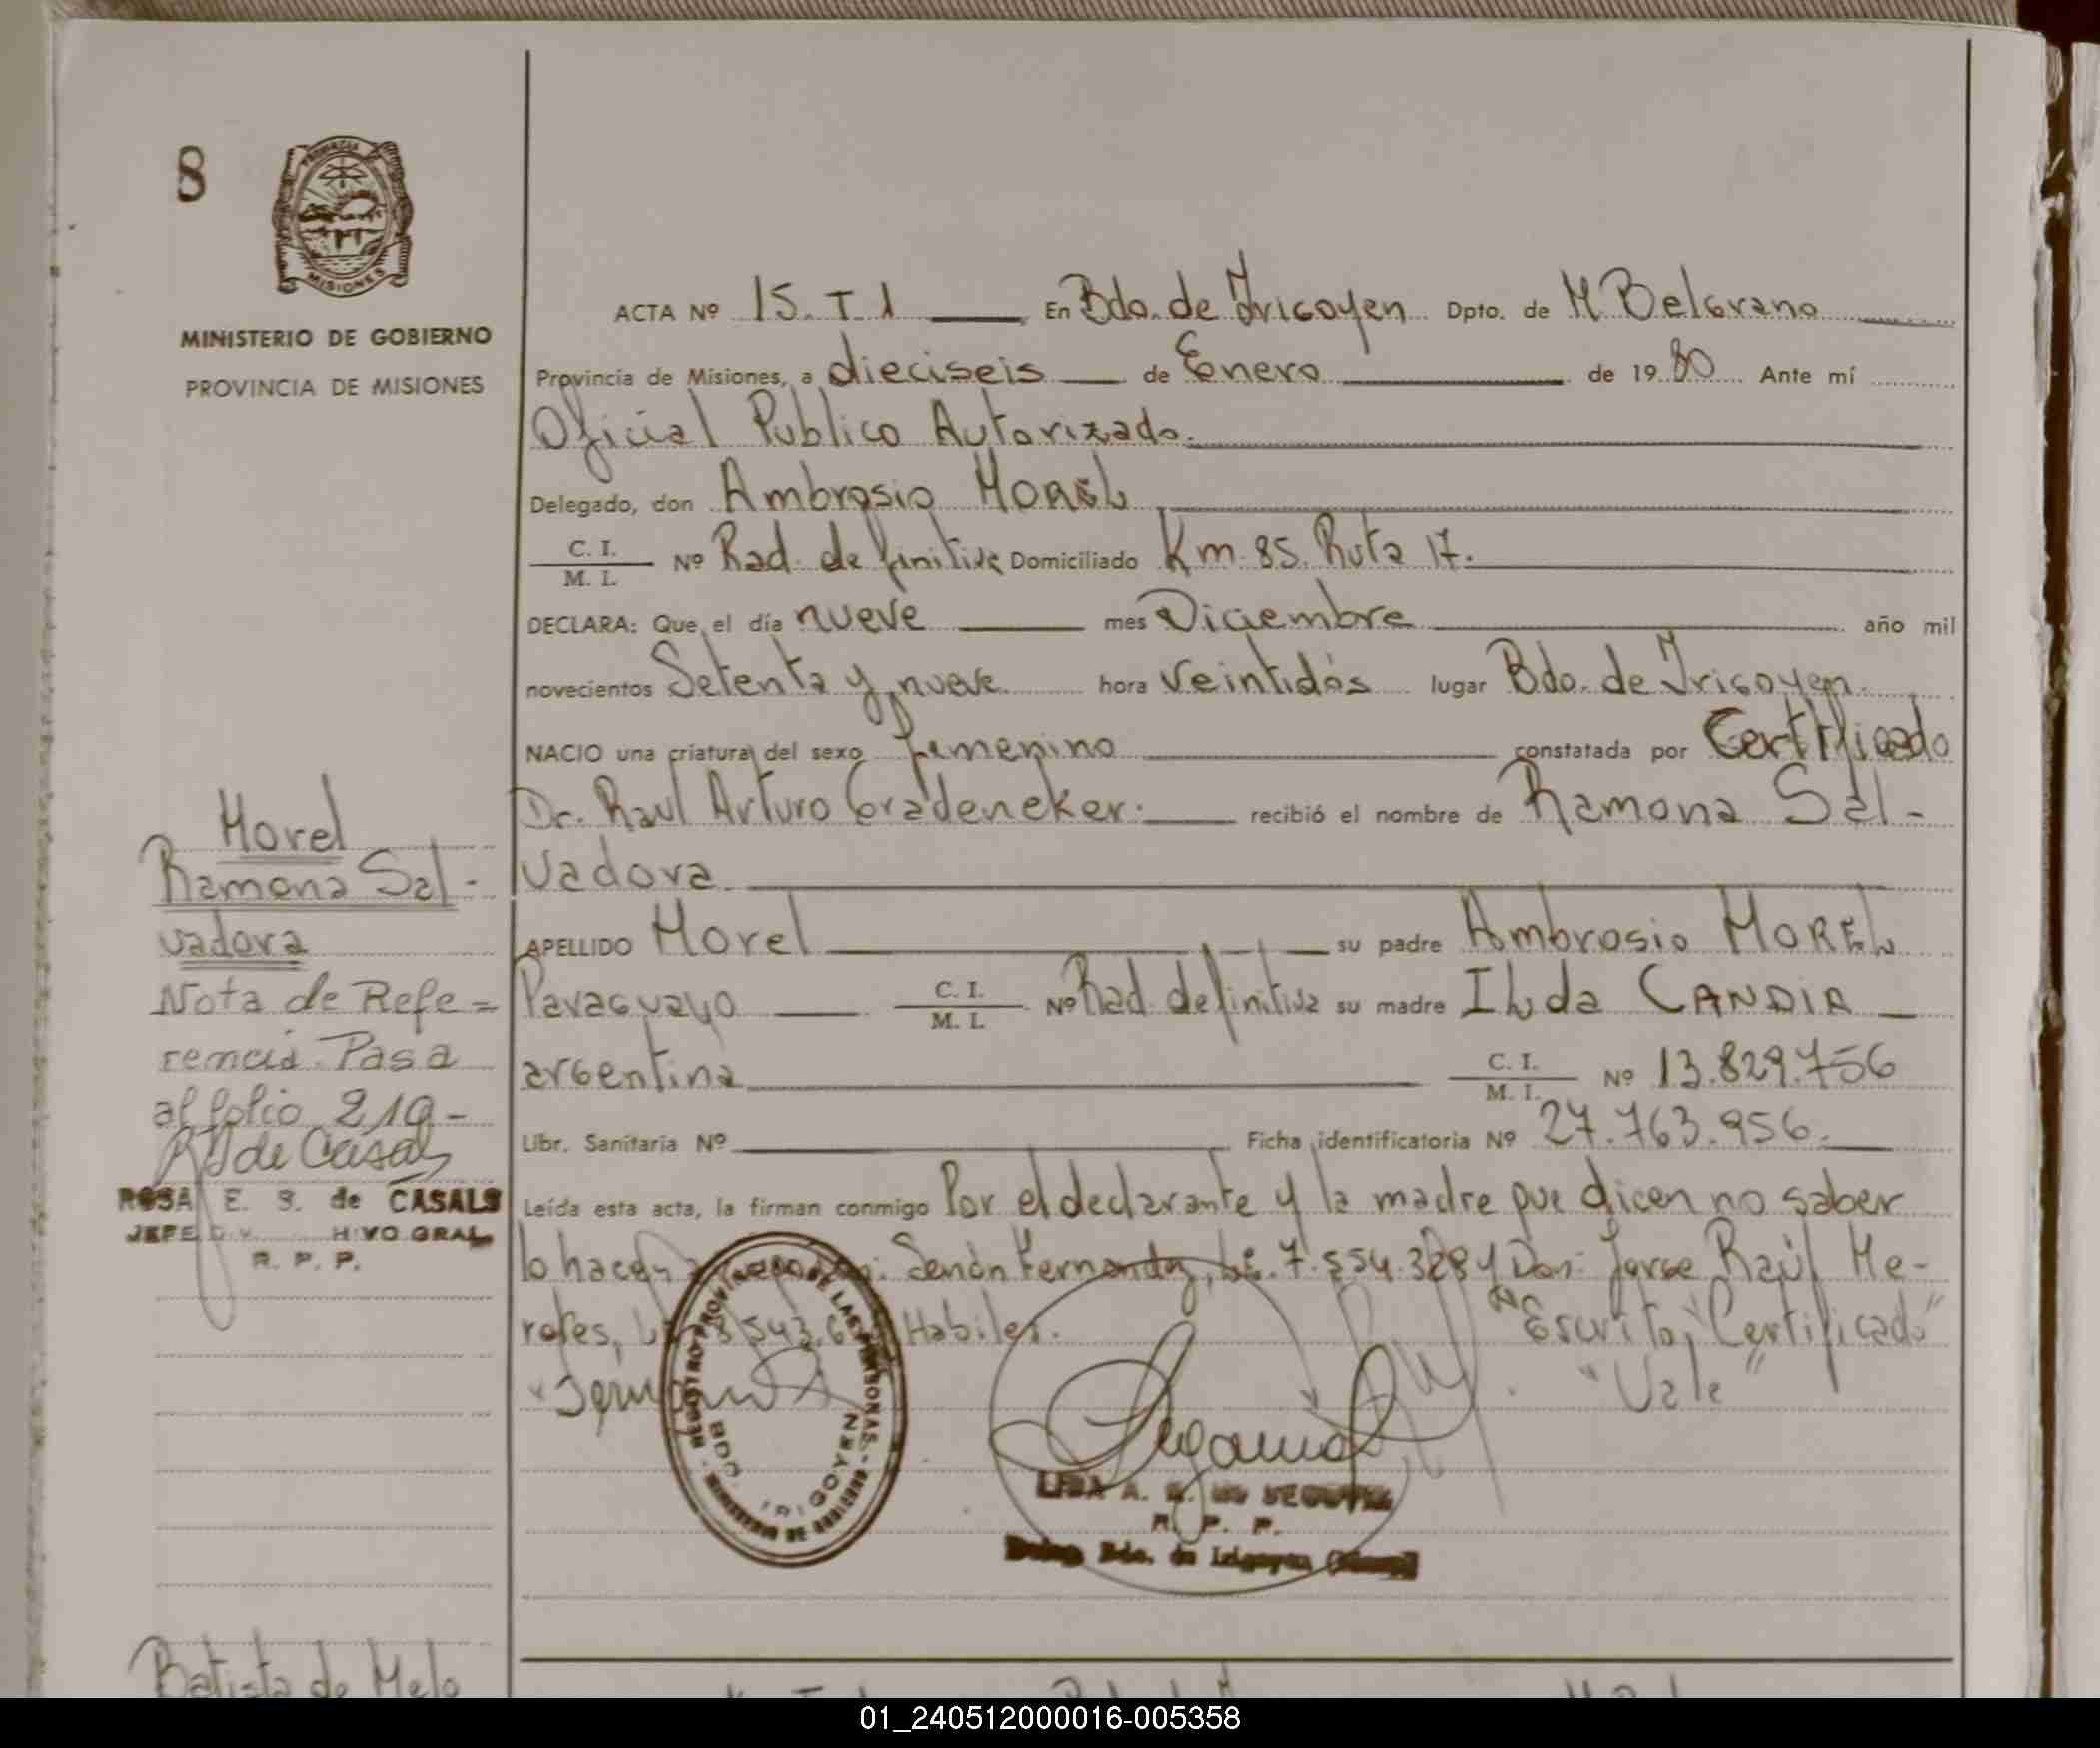 8
PROVINCIA
MISIONES
MINISTERIO DE GOBIERNO
PROVINCIA DE MISIONES
ACTA Nº 15. T 1 En Bdo. de Irigoyen Dpto. de M Belgrano
Provincia de Misiones, a dieciseis de Enero de 1980 Ante mí
Oficial Publico Autorizado.
Delegado, don Ambrosio MOREL
C. I.
M. I. Nº Rad. definitiva Domiciliado Km. 85. Ruta 17.
DECLARA: Que el día nueve mes Diciembre año mil
novecientos Setenta y nueve hora veintidós lugar Bdo. de Irigoyen.
NACIO una criatura del sexo femenino constatada por Certificado
Dr. Raul Arturo Gradeneker. recibió el nombre de Ramona Sal-
vadora
APELLIDO Morel su padre Ambrosio MOREL
Paraguayo C. I.
M. I. Nº Rad. definitiva su madre Ilda CANDIA
argentina C. I.
M. I. Nº 13.829.756
Libr. Sanitaria Nº Ficha identificatoria Nº 27.763.956.
Leída esta acta, la firman conmigo Por el declarante y la madre que dicen no saber
lo hacen Senón Fernandez, 7.554.328 y Don: Jorge Raúl Me-
reles, Habiles. "Escrito, "Certificado"
"Vale"
Morel
Ramona Sal-
vadora
Nota de Refe=
rencia. Pasa
al folio 219-
RS de Casals
ROSA E. S. de CASALS
JEFE HIVO GRAL
R. P. P.
REGISTRO PROVINCIAL DE LAS PERSONAS
BDO. IRIGOYEN
R. P. P.
Bdo. de Irigoyen
Batista de Melo
01_240512000016-005358